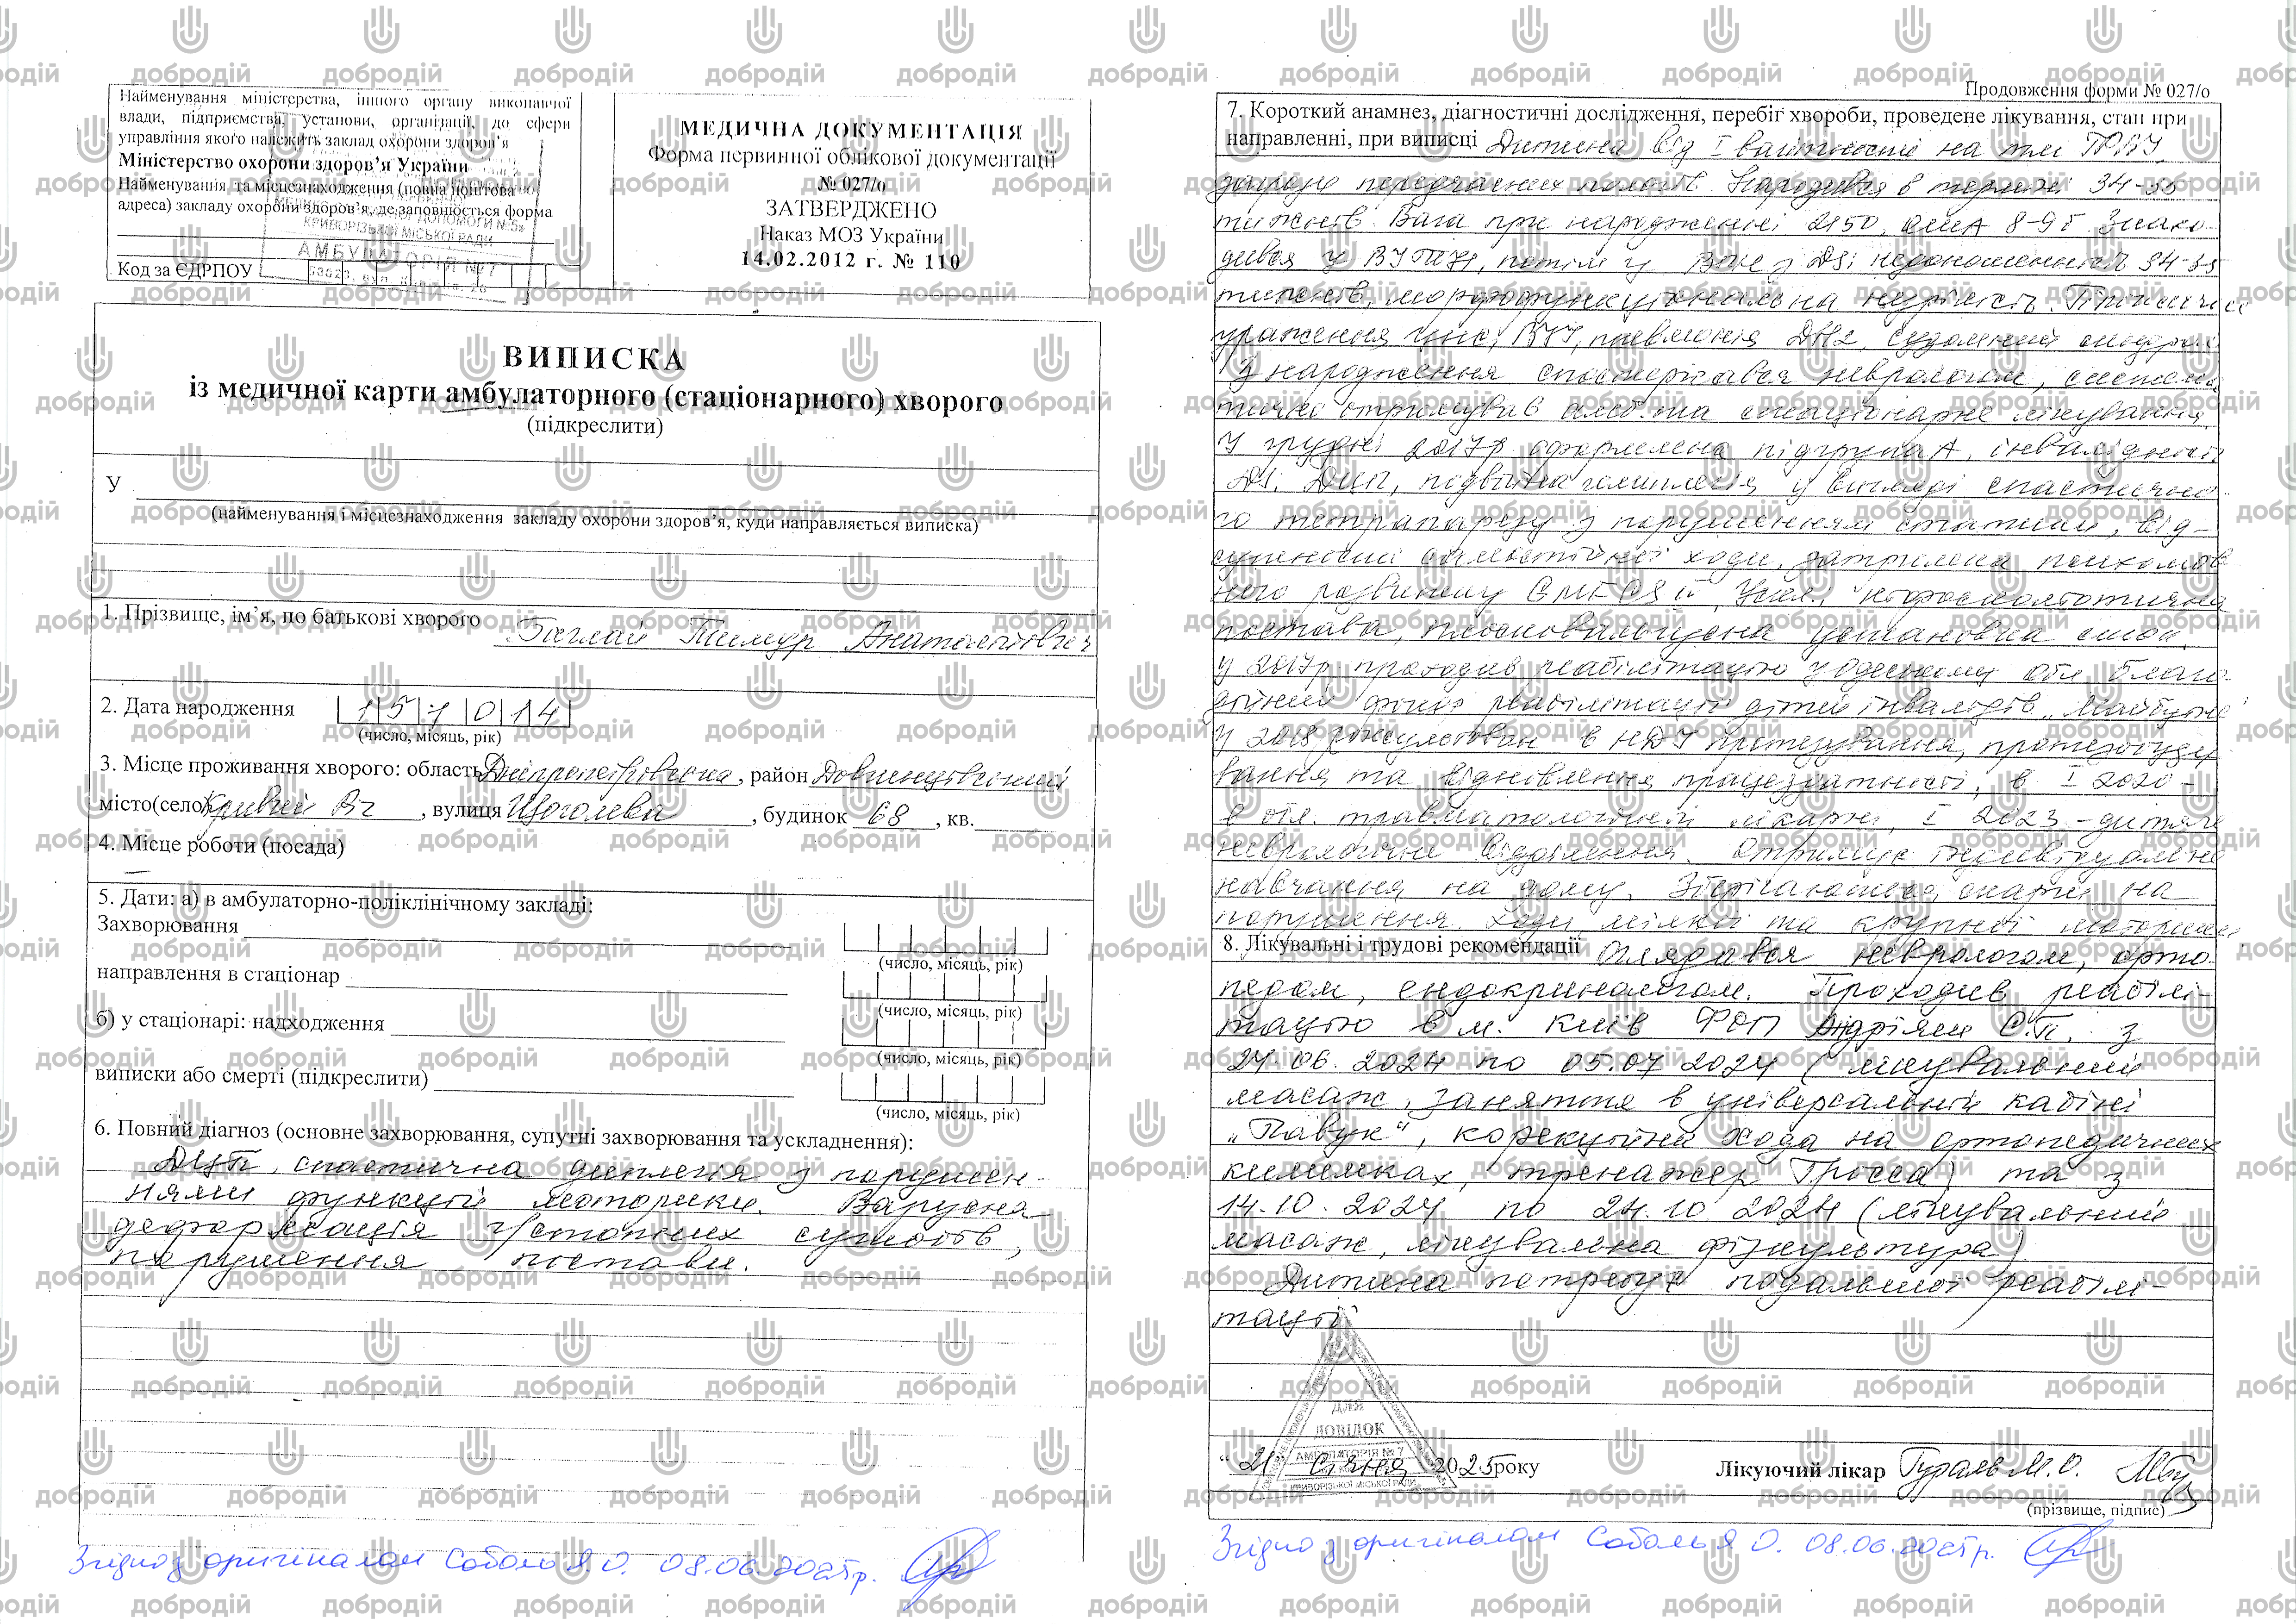 Найменування міністерства, іншого органу виконавчої
влади, підприємства, установи, організації, до сфери
управління якого належить заклад охорони здоров’я
Міністерство охорони здоров’я України
Найменування та місцезнаходження (повна поштова
адреса) закладу охорони здоров’я, де заповнюється форма
КРИВОРІЗЬКОЇ МІСЬКОЇ РАДИ
АМБУЛАТОРІЯ №7
Код за ЄДРПОУ
МЕДИЧНА ДОКУМЕНТАЦІЯ
Форма первинної облікової документації
№ 027/о
ЗАТВЕРДЖЕНО
Наказ МОЗ України
14.02.2012 г. № 110
ВИПИСКА
із медичної карти амбулаторного (стаціонарного) хворого
(підкреслити)
У
(найменування і місцезнаходження закладу охорони здоров’я, куди направляється виписка)
1. Прізвище, ім’я, по батькові хворого Баглай Тимур Анатолійович
2. Дата народження 151014
(число, місяць, рік)
3. Місце проживання хворого: область Дніпропетровська, район Довгинцівський
місто(село) Кривий Ріг, вулиця Щоголева, будинок 68, кв.
4. Місце роботи (посада)
5. Дати: а) в амбулаторно-поліклінічному закладі:
Захворювання
(число, місяць, рік)
направлення в стаціонар
(число, місяць, рік)
б) у стаціонарі: надходження
(число, місяць, рік)
виписки або смерті (підкреслити)
(число, місяць, рік)
6. Повний діагноз (основне захворювання, супутні захворювання та ускладнення):
ДЦП, спастична диплегія з порушен-
нями функції моторики. Варусна
деформація г/стопних суглобів,
порушення постави.
Згідно з оригіналом Соболь Я.О. 08.06.2025р.
Продовження форми № 027/о
7. Короткий анамнез, діагностичні дослідження, перебіг хвороби, проведене лікування, стан при
направленні, при виписці Дитина від I вагітності на тлі ГРВІ,
загрозою передчасних пологів. Народився в терміні 34-35
тижнів. Вага при народженні 2150, 8-9б. Знахо-
дився у з DS: недоношенність 34-35
тижнів, морфофункціональна незрілість. Гіпоксичне
ураження ЦНС, ВУІ, пневмонія ДН2, судомний синдром
З народження спостерігався неврологом, система-
тично отримував амб. та стаціонарне лікування.
У грудні 2017р оформлена підгрупа А, інвалідності
DS: ДЦП, подвійна геміплегія у вигляді спастично-
го тетрапарезу з порушенням статики, від-
сутности самостійної ходи, затримка психомов-
ного розвитку GMFCS
постава, плосковальгусна установка стоп.
у 2017р. проходив реабілітацію у Одеському обл. благо-
дійний фонд реабілітації дітей інвалідів „Майбутнє“
у 2018 консультован в НДІ протезування, протезобуду-
вання та відновлення працездатності, в I 2020 -
в обл. травматологічній лікарні, I 2023 - дитяче
неврологічне відділення. Отримує індивідуальне
навчання на дому. Зберігаються скарги на
порушення ходи, мілкої та крупної моторики
8. Лікувальні і трудові рекомендації Оглядався неврологом, орто-
педом, ендокринологом. Проходив реабілі-
тацію в м. Київ ФОП Андріяш С.П. з
24.06.2024 по 05.07.2024 (лікувальний
масаж, заняття в універсальній кабіні
„Павук“, корекційна хода на ортопедичних
килимках, тренажер Гросса) та з
14.10.2024 по 24.10.2024 (лікувальний
масаж, лікувальна фізкультура)
Дитина потребує подальшої реабілі-
тації
ДЛЯ
ДОВІДОК
АМБУЛАТОРІЯ №7
КРИВОРІЗЬКОЇ МІСЬКОЇ РАДИ
“21” січня 2025 року Лікуючий лікар М.О.
(прізвище, підпис)
Згідно з оригіналом Соболь Я О. 08.06.2025р.
добродій